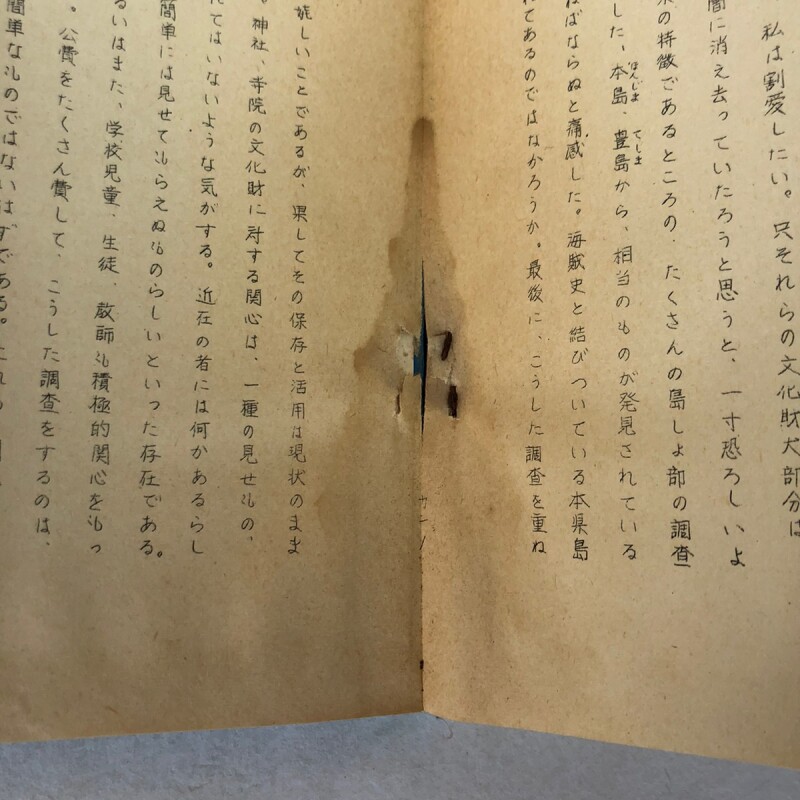 私は割愛したい。只それらの文化財大部分は
闇に消え去っていたろうと思うと、一寸恐ろしいよ
の特徴であるところの、たくさんの島しょ部の調査
した、本島、豊島から、相当のものが発見されている
ほんじま
てしま
ねばならぬと痛感した。海賊史と結びついている本県島
れてあるのではなかろうか。最後に、こうした調査を重ね
嬉しいことであるが、果してその保存と活用は現状のまま
。神社、寺院の文化財に対する関心は、一種の見せもの、
れてはいないような気がする。近在の者には何かあるらし
簡単には見せてもらえぬものらしいといった存在である。
るいはまた、学校児童、生徒、教師も積極的関心をもっ
。公費をたくさん費して、こうした調査をするのは、
簡単なものではないはずである。